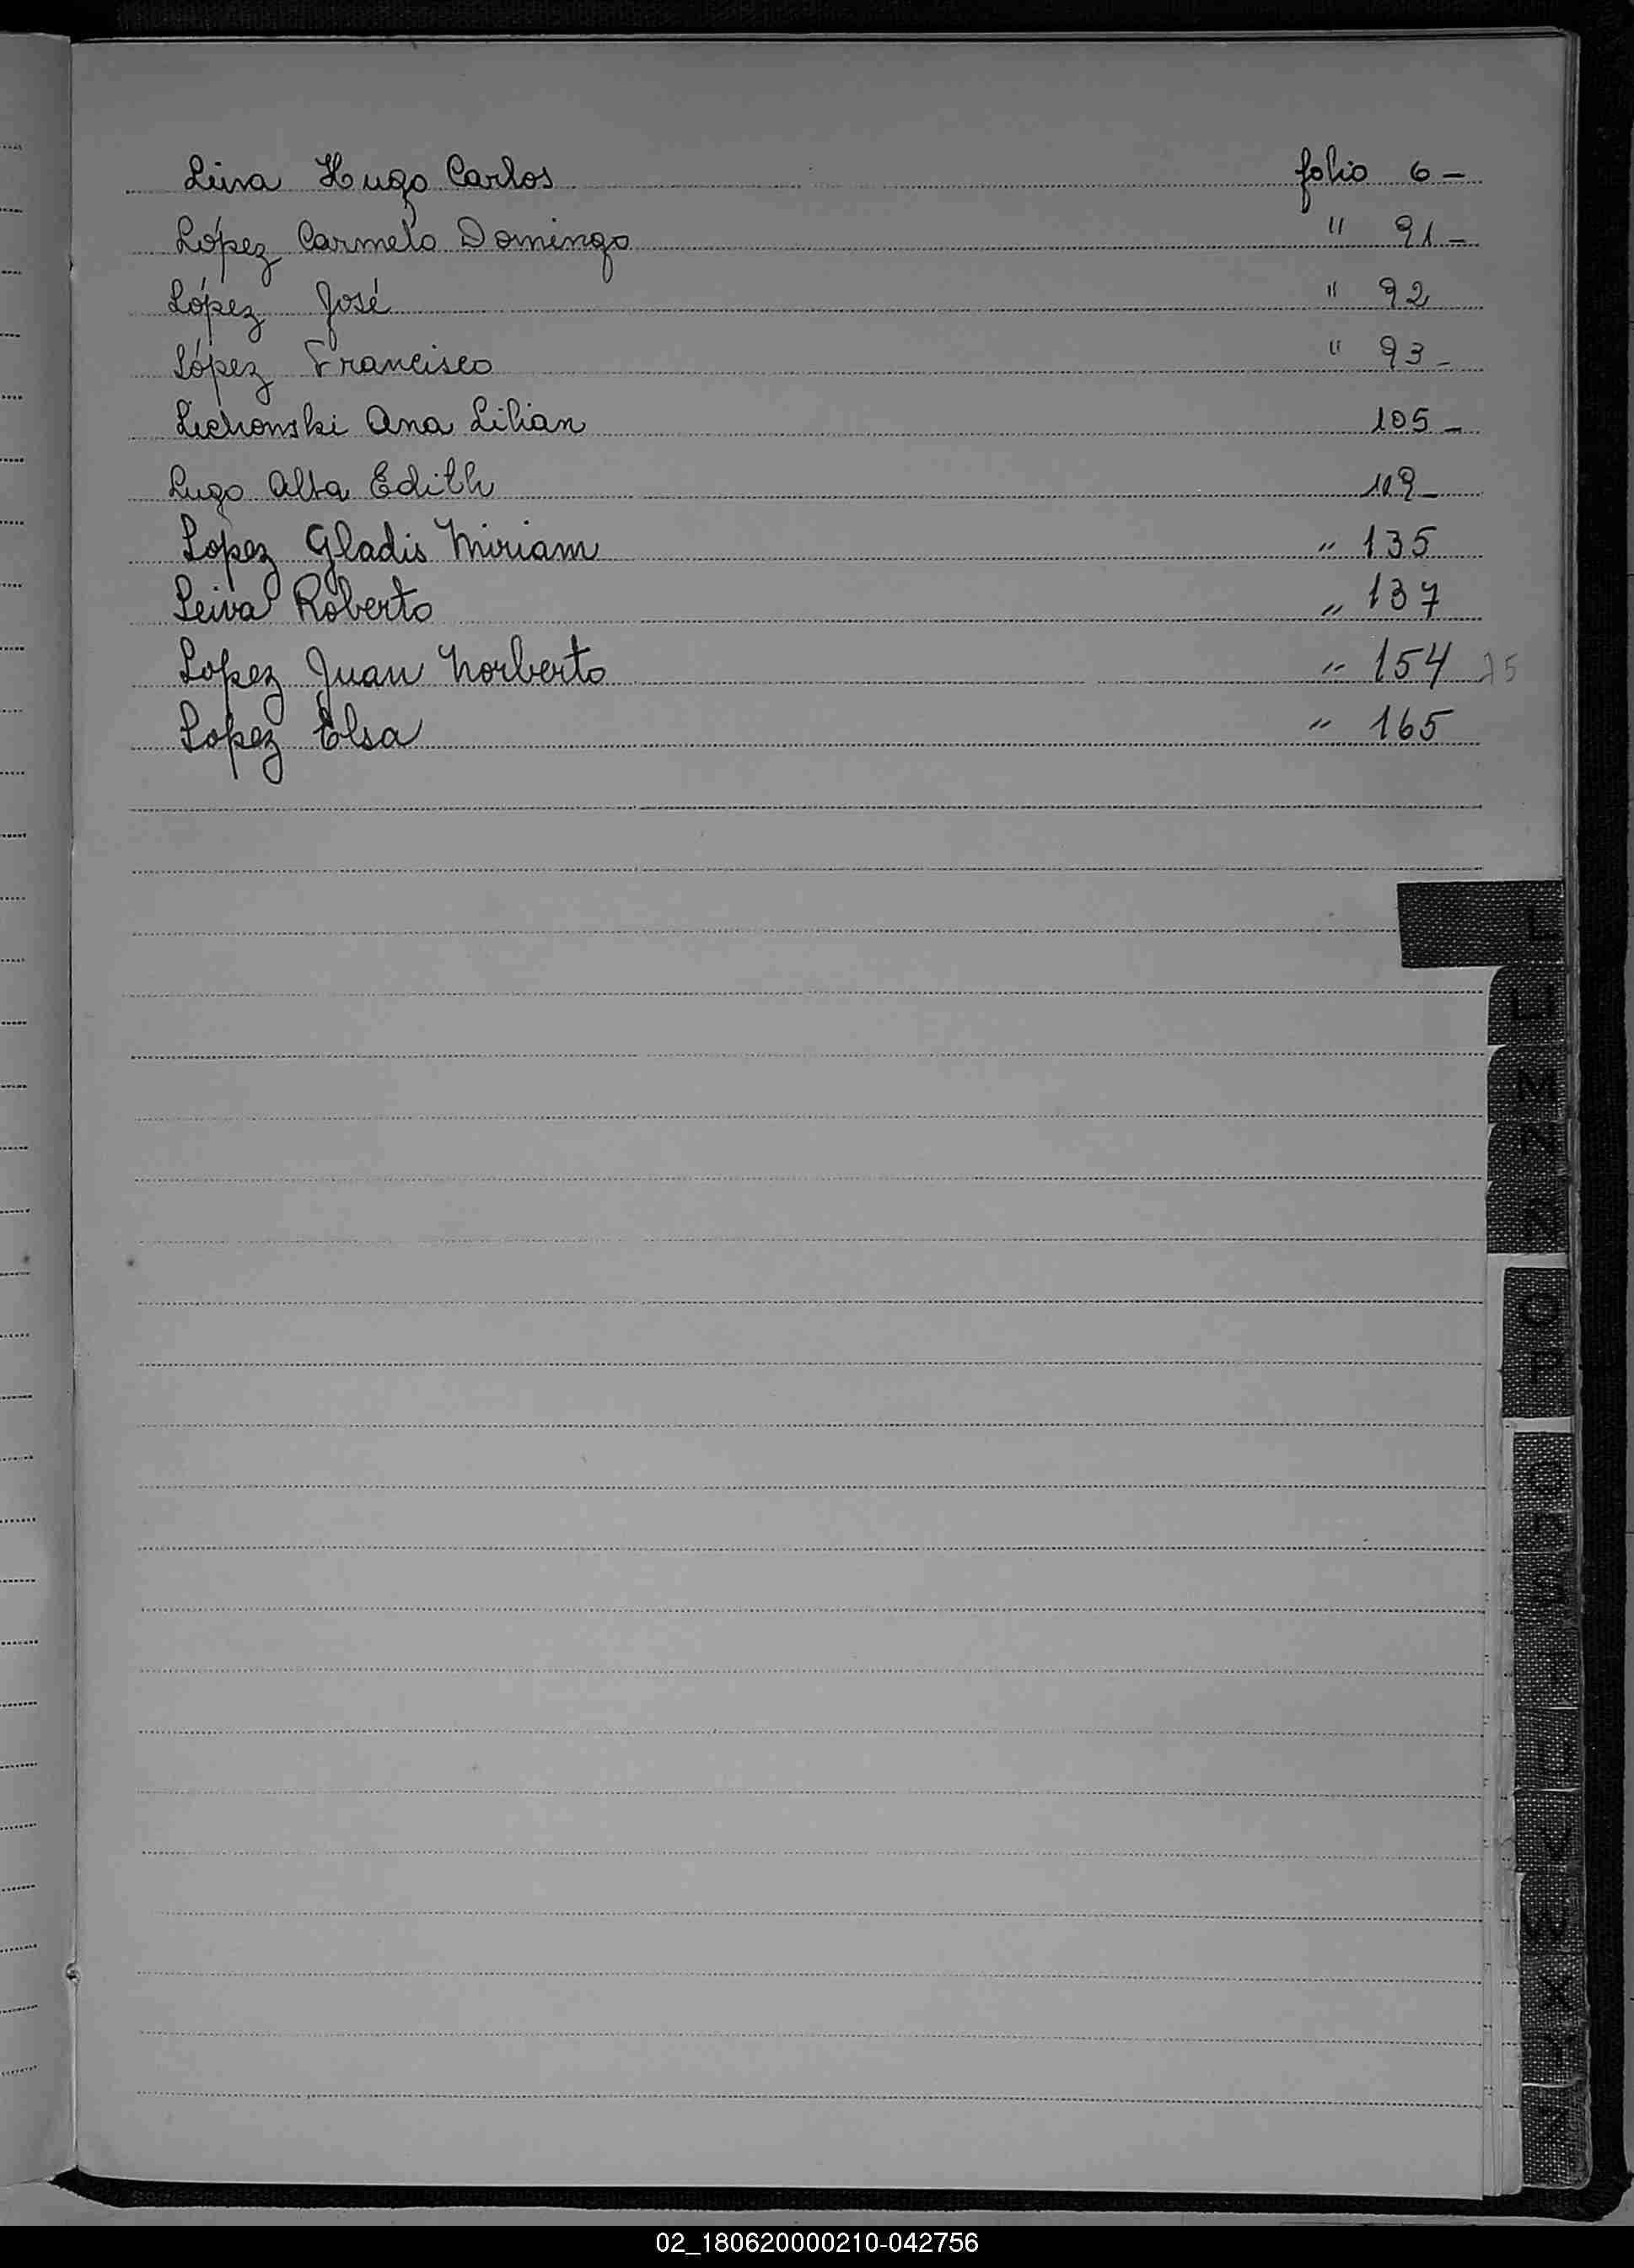 Leiva Hugo Carlos folio 6 -
López Carmelo Domingo " 91 -
López José " 92
López Francisco " 93 -
Lichowski Ana Lilian 105 -
Lugo Alba Edith 109 -
Lopez Gladis Miriam " 135
Leiva Roberto " 137
Lopez Juan Norberto " 154
Lopez Elsa " 165
L
LL
M
N
Ñ
O
P
Q
R
S
T
U
V
W
X
Y
Z
02_180620000210-042756